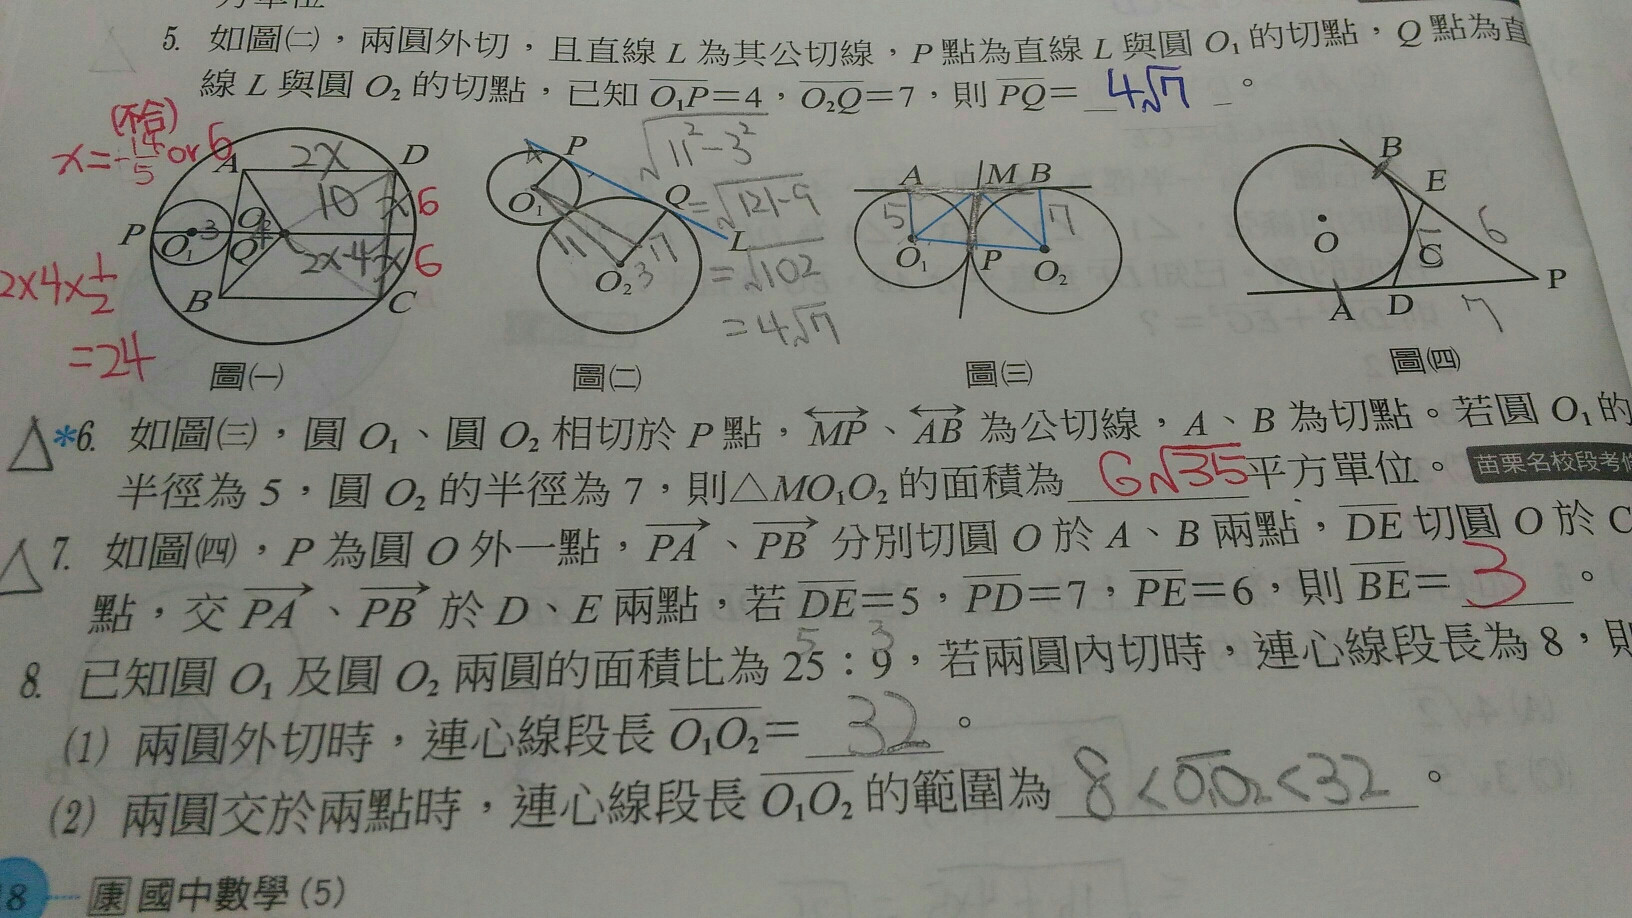 5. 如圖㈡，兩圓外切，且直線 L 為其公切線，P 點為直線 L 與圓 O₁ 的切點，Q 點為直
線 L 與圓 O₂ 的切點，已知 O₁P=4，O₂Q=7，則 PQ= 4√7 。
(不合)
x=-14/5 or 6
2x4x1/2
=24
A 2x D
10 x 6
P O₁ 3 Q 4
2x-4 x 6
B C
圖㈠
P
O₁
Q
11 7
L
O₂ 3
√11²-3²
=√121-9
=√102
=4√7
圖㈡
A M B
5 7
O₁ P O₂
圖㈢
B
E
6
O C 5
P
A D 7
圖㈣
△*6. 如圖㈢，圓 O₁、圓 O₂ 相切於 P 點，MP、AB 為公切線，A、B 為切點。若圓 O₁ 的
半徑為 5，圓 O₂ 的半徑為 7，則△MO₁O₂ 的面積為 6√35 平方單位。 苗栗名校段考
△ 7. 如圖㈣，P 為圓 O 外一點，PA、PB 分別切圓 O 於 A、B 兩點，DE 切圓 O 於 C
點，交 PA、PB 於 D、E 兩點，若 DE=5，PD=7，PE=6，則 BE= 3 。
5 3
8. 已知圓 O₁ 及圓 O₂ 兩圓的面積比為 25：9，若兩圓內切時，連心線段長為 8，則
(1) 兩圓外切時，連心線段長 O₁O₂= 32 。
(2) 兩圓交於兩點時，連心線段長 O₁O₂ 的範圍為 8<O₁O₂<32 。
8 康 國中數學(5)